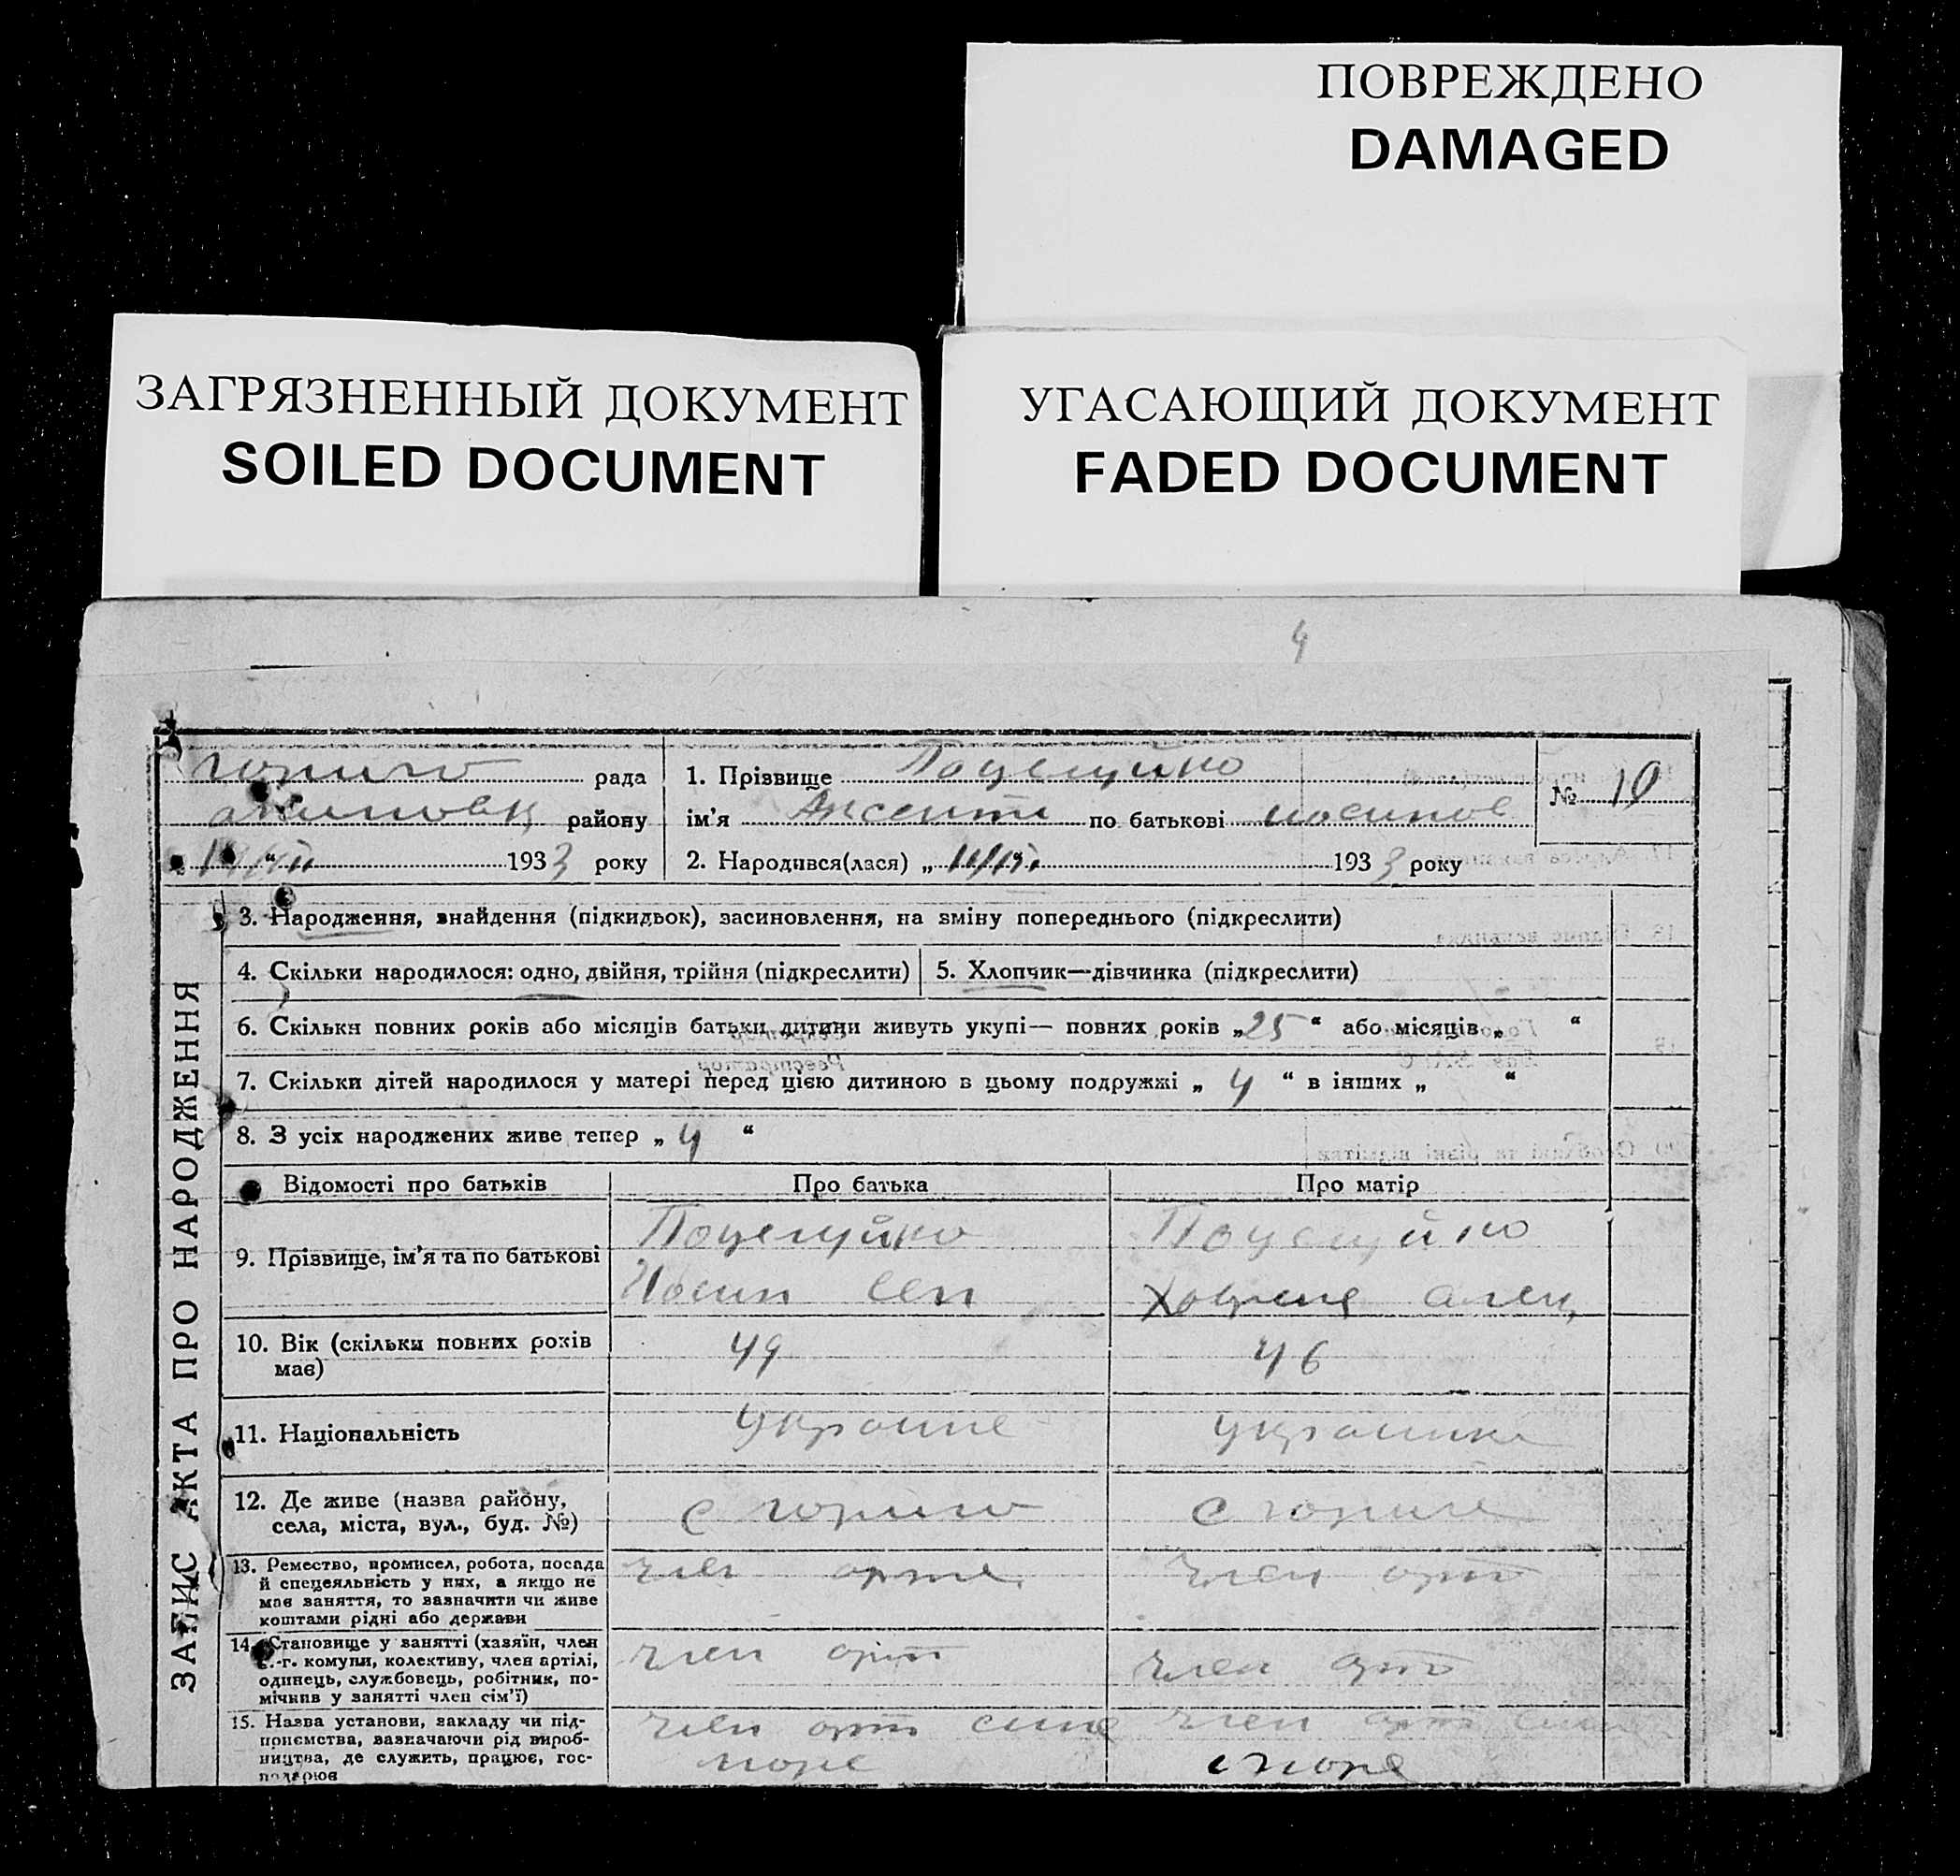 ПОВРЕЖДЕНО
DAMAGED
ЗАГРЯЗНЕННЫЙ ДОКУМЕНТ
SOILED DOCUMENT
УГАСАЮЩИЙ ДОКУМЕНТ
FADED DOCUMENT
4
ЗАПИС АКТА ПРО НАРОДЖЕННЯ
рада
району
1933 року
1. Прізвище Поцелуйко
ім'я по батькові
2. Народився(лася) „ 1933 року
№ 10
3. Народження, знайдення (підкидьок), засиновлення, на зміну попереднього (підкреслити)
4. Скільки народилося: одно, двійня, трійня (підкреслити)
5. Хлопчик—дівчинка (підкреслити)
6. Скільки повних років або місяців батьки дитини живуть укупі— повних років „25“ або місяців „ “
7. Скільки дітей народилося у матері перед цією дитиною в цьому подружжі „ 4 “ в інших „ “
8. З усіх народжених живе тепер „ 4 “
Відомості про батьків
Про батька
Про матір
9. Прізвище, ім'я та по батькові
Поцелуйко
Йосип Сем
Поцелуйко
10. Вік (скільки повних років
має)
49
46
11. Національність
украине
украинка
12. Де живе (назва району,
села, міста, вул., буд. №)
13. Ремество, промисел, робота, посада
й спецеяльність у них, а якщо не
має заняття, то зазначити чи живе
коштами рідні або держави
член арте
член арт
14. Становище у занятті (хазяїн, член
с.-г. комуни, колективу, член артілі,
одинець, службовець, робітник, по-
мічник у занятті член сім'ї)
член арт
член арт
15. Назва установи, закладу чи під-
приємства, зазначаючи рід вироб-
ництва, де служить, працює, гос-
подарює
член арт сине
море
член арт
море